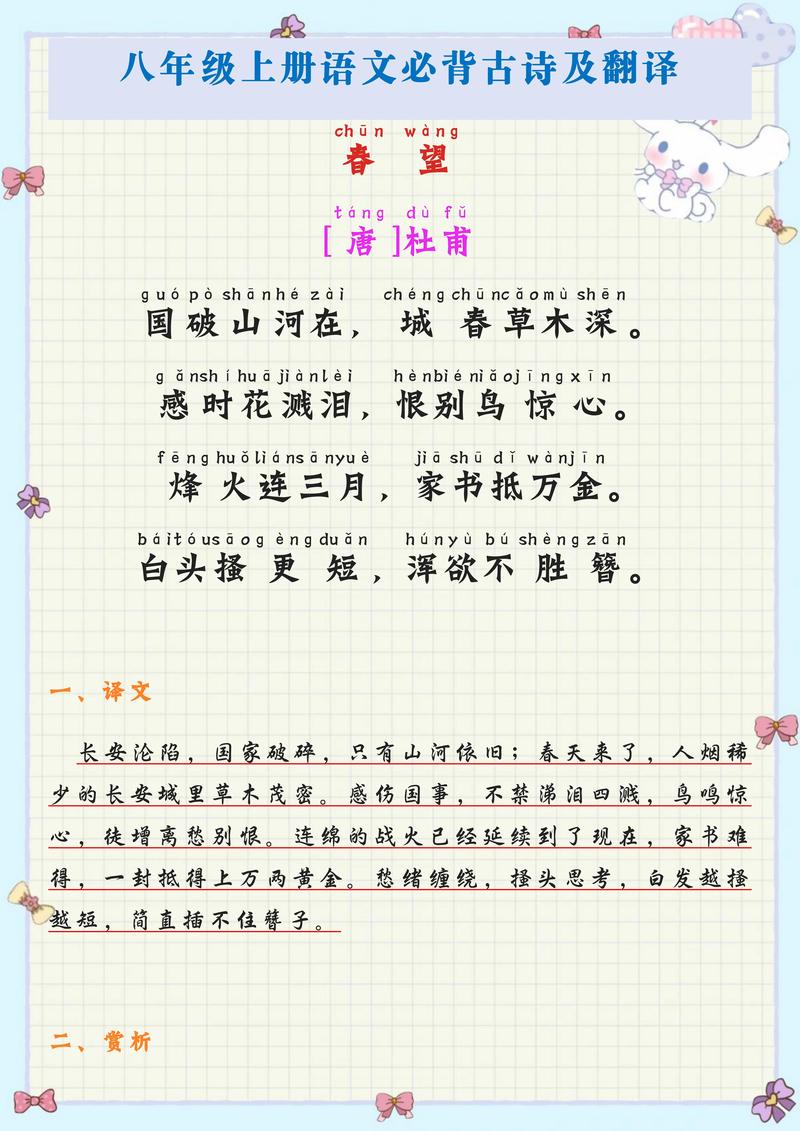 八年级上册语文必背古诗及翻译
chūn wàng
春 望
táng dù fǔ
[唐]杜甫
guó pò shān hé zài chéng chūn cǎo mù shēn
国破山河在，城春草木深。
gǎn shí huā jiàn lèi hèn bié niǎo jīng xīn
感时花溅泪，恨别鸟惊心。
fēng huǒ lián sān yuè jiā shū dǐ wàn jīn
烽火连三月，家书抵万金。
bái tóu sāo gèng duǎn hún yù bú shèng zān
白头搔更短，浑欲不胜簪。
一、译文
长安沦陷，国家破碎，只有山河依旧；春天来了，人烟稀
少的长安城里草木茂密。感伤国事，不禁涕泪四溅，鸟鸣惊
心，徒增离愁别恨。连绵的战火已经延续到了现在，家书难
得，一封抵得上万两黄金。愁绪缠绕，搔头思考，白发越搔
越短，简直插不住簪子。
二、赏析